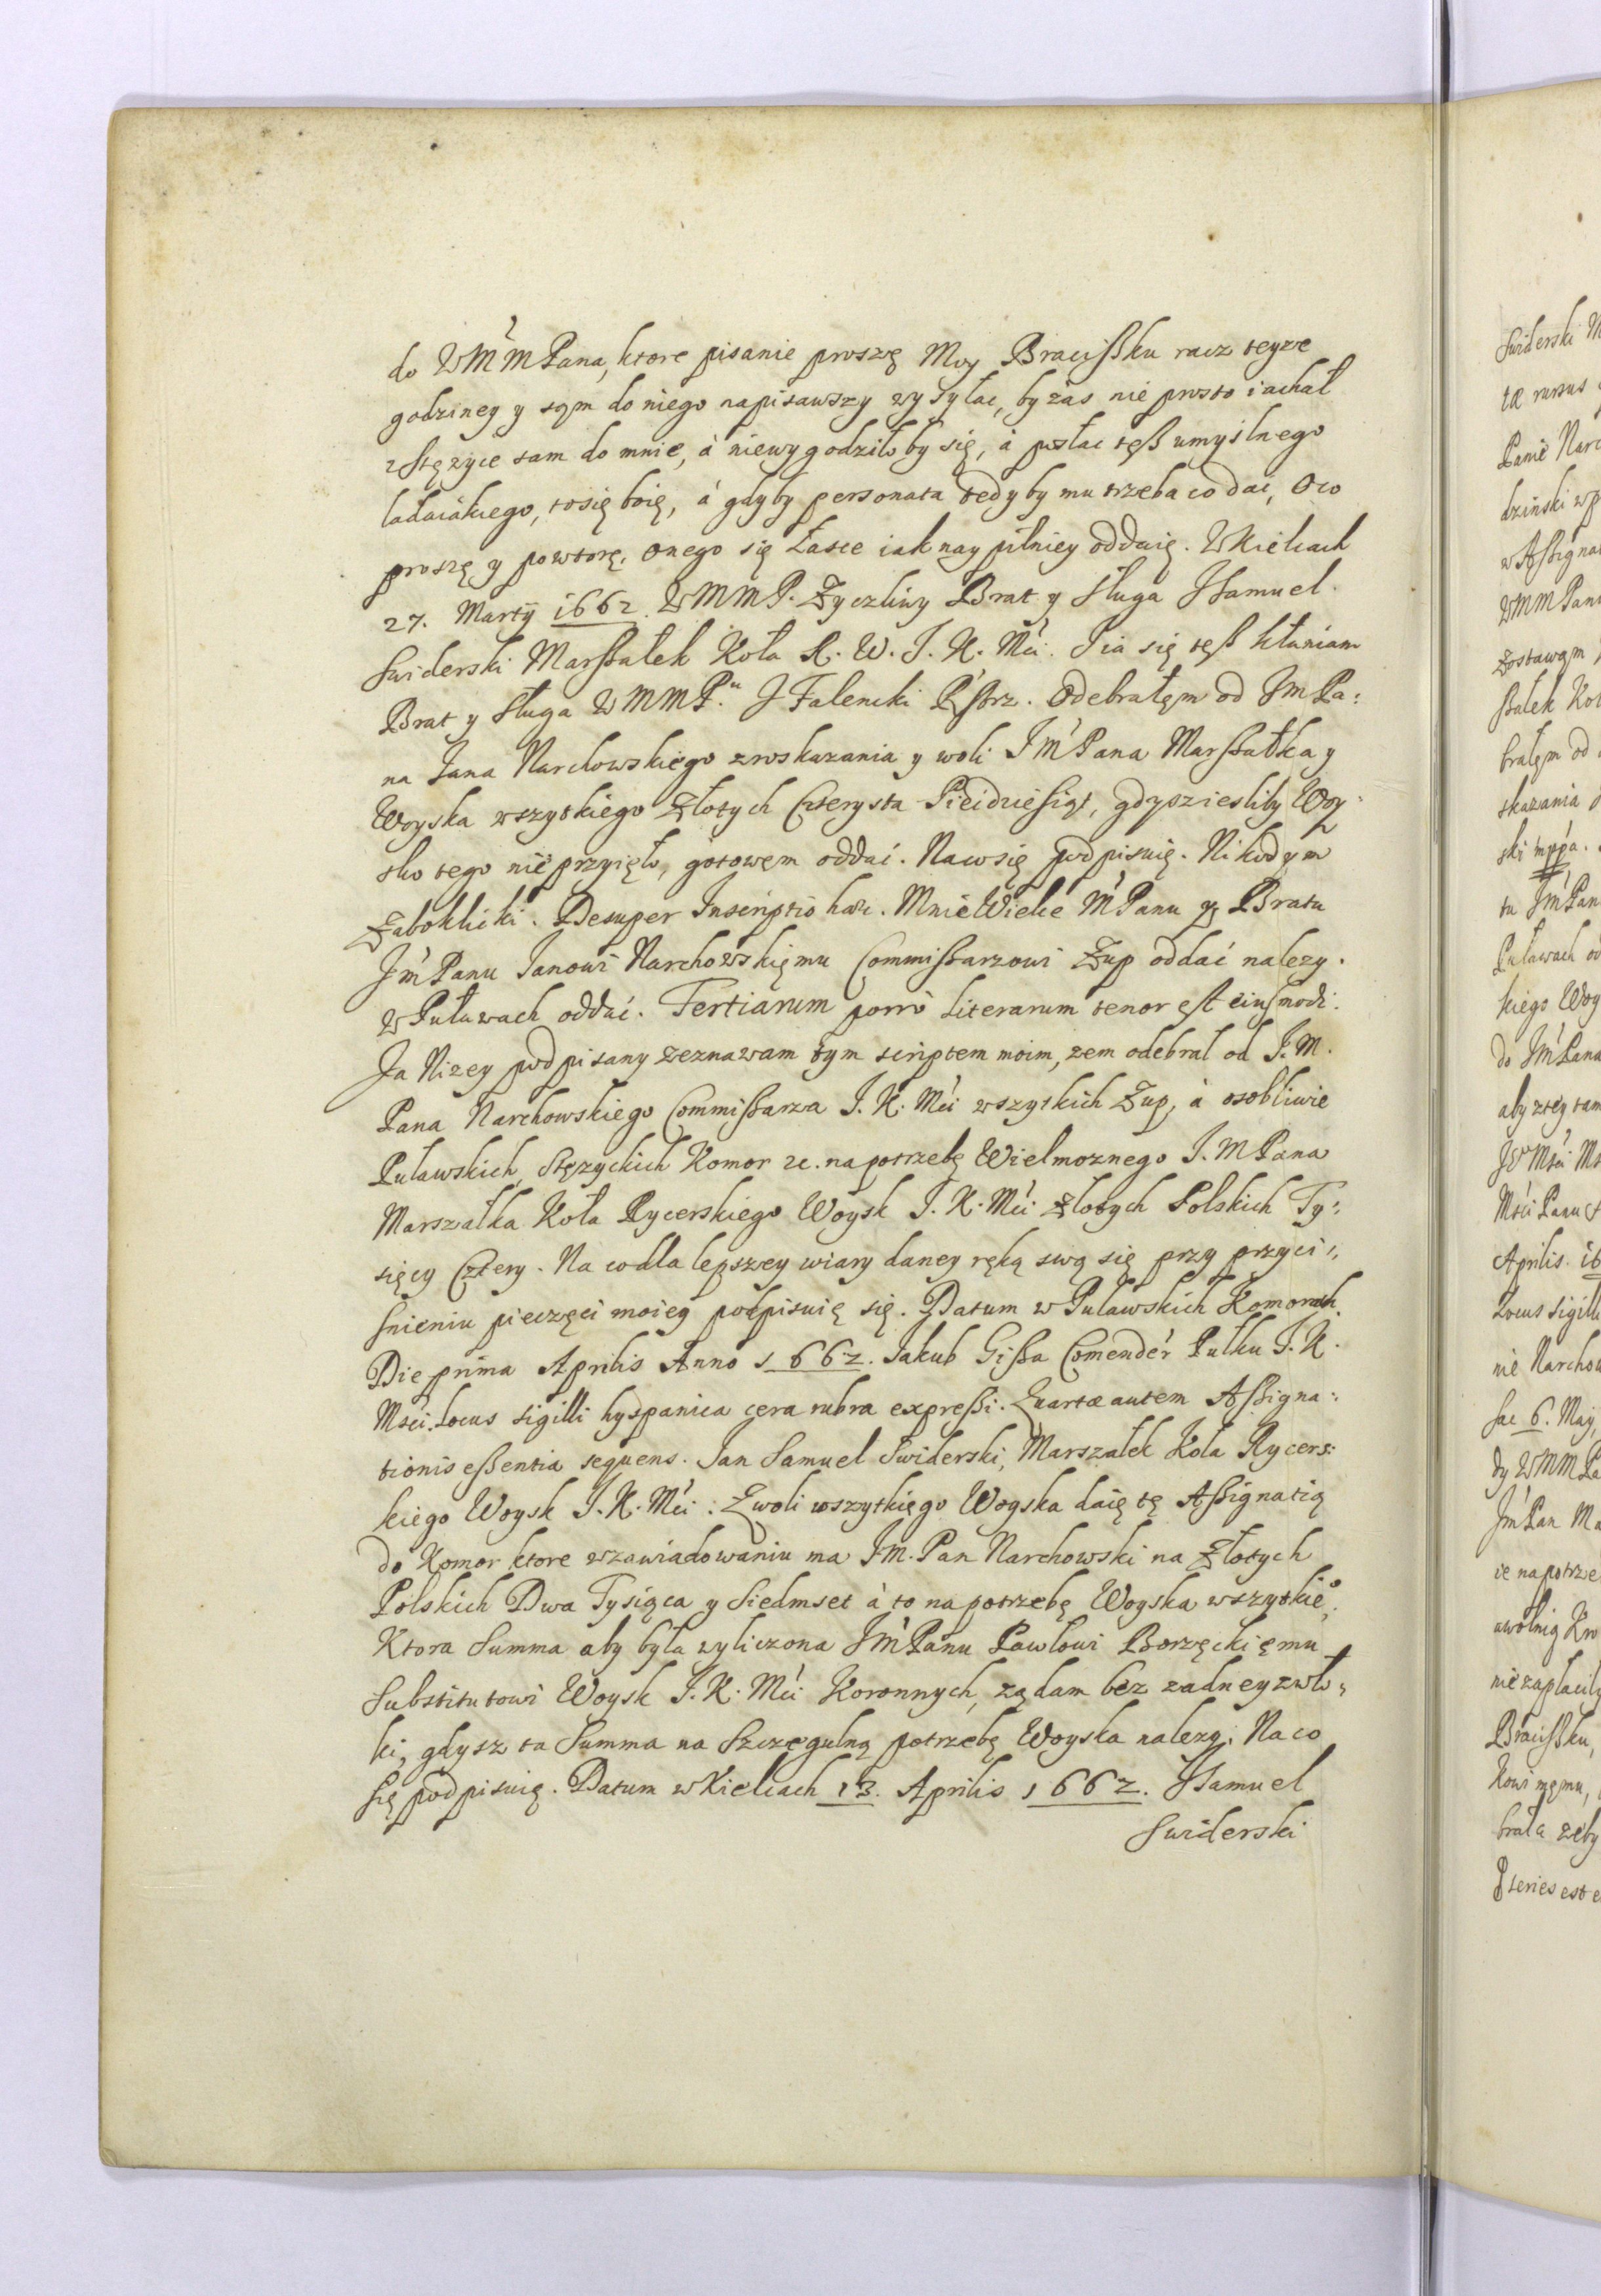 do WMMPana, ktore pisanie proszę Moy Braciszku racz teyze
godziney y sam do niego napisawszy wysyłac, by zas nie prosto iachał
z Stęzyce tam do mnie, á niewygodziłoby się, á posłac tesz umyslnego
ladaiákiego, tosię boię, á gdyby personata tedyby mu trzeba co dać, Oco
proszę y powtorę, onego się Łasce iak naypilniey oddaię. W Kielcach
27. Martÿ 1662 WMMP. Zyczliwy Brat y Sługa JSamuel
Swiderski Marszałek Koła R. W. J. K. Mći. J ia się tesz kłaniam
Brat y Sługa WMMP. J Falencki Odebrałęm od JmPa:
na Jana Narchowskiego z roskazania y woli JmPana Marszałka y
Woyska wszytkiego Złotych Czterysta Piędziesiąt, gdyszieśliby Woy:
sko tego nie przyięło, gotowem oddać. Nacosię podpisuię. Nikodym
Zaboklicki. Desuper Inscriptio haec. MnieWielce MPanu y Bratu
JmPanu Janowi Narchowskięmu Commissarzowi Zup oddać nalezy.
w Puławach oddać. Tertiarum porró Literarum tenor est eiusmodi.
Ja Nizey podpisany zeznawam tym scriptem moim, zem odebrał od J. M.
Pana Narchowskiego Commissarza J. K. Mći wszyskich Zup, á osobliwie
Puławskich, Stęzyckich Komor &c. na potrzebę Wielmoznego J. M Pana
Marszałka Koła Rycerskiego Woysk J. K. Mći. Złotych Polskich Ty:
sięcy Cztery. Na co dla lepszey wiary daney ręką swą się przy przyci:
snieniu pieczęci moiey podpisuię się. Datum w Puławskich Komorach.
Die prima Aprilis Anno 1662. Jakub Gissa Comendér Pułku J. K.
Msći. Locus sigilli hyspanica cera rubra expressi. Quartae autem Assigna:
tionis essentia sequens. Jan Samuel Swiderski, Marszałek Koła Rycers:
kiego Woysk J. K. Mći. Zwoli wszytkięgo Woyska daię tę Assignatią
do Komor ktore wzawiadowaniu ma Jm. Pan Narchowski na Złotych
Polskich Dwa Tysiąca y Siedmset á to na potrzebę Woyska wszytkie°.
Ktora Summa aby była wyliczona JmPanu Pawłowi Borzęckięmu
Substitutowi Woysk J. K. Mći Koronnych, ządam bez zadney zwło:
ki, gdysz ta Summa na Szczegulną potrzebę Woyska nalezy. Na co
się podpisuię. Datum w Kielcach 13. Aprilis 1662. JSamuel
Swiderski